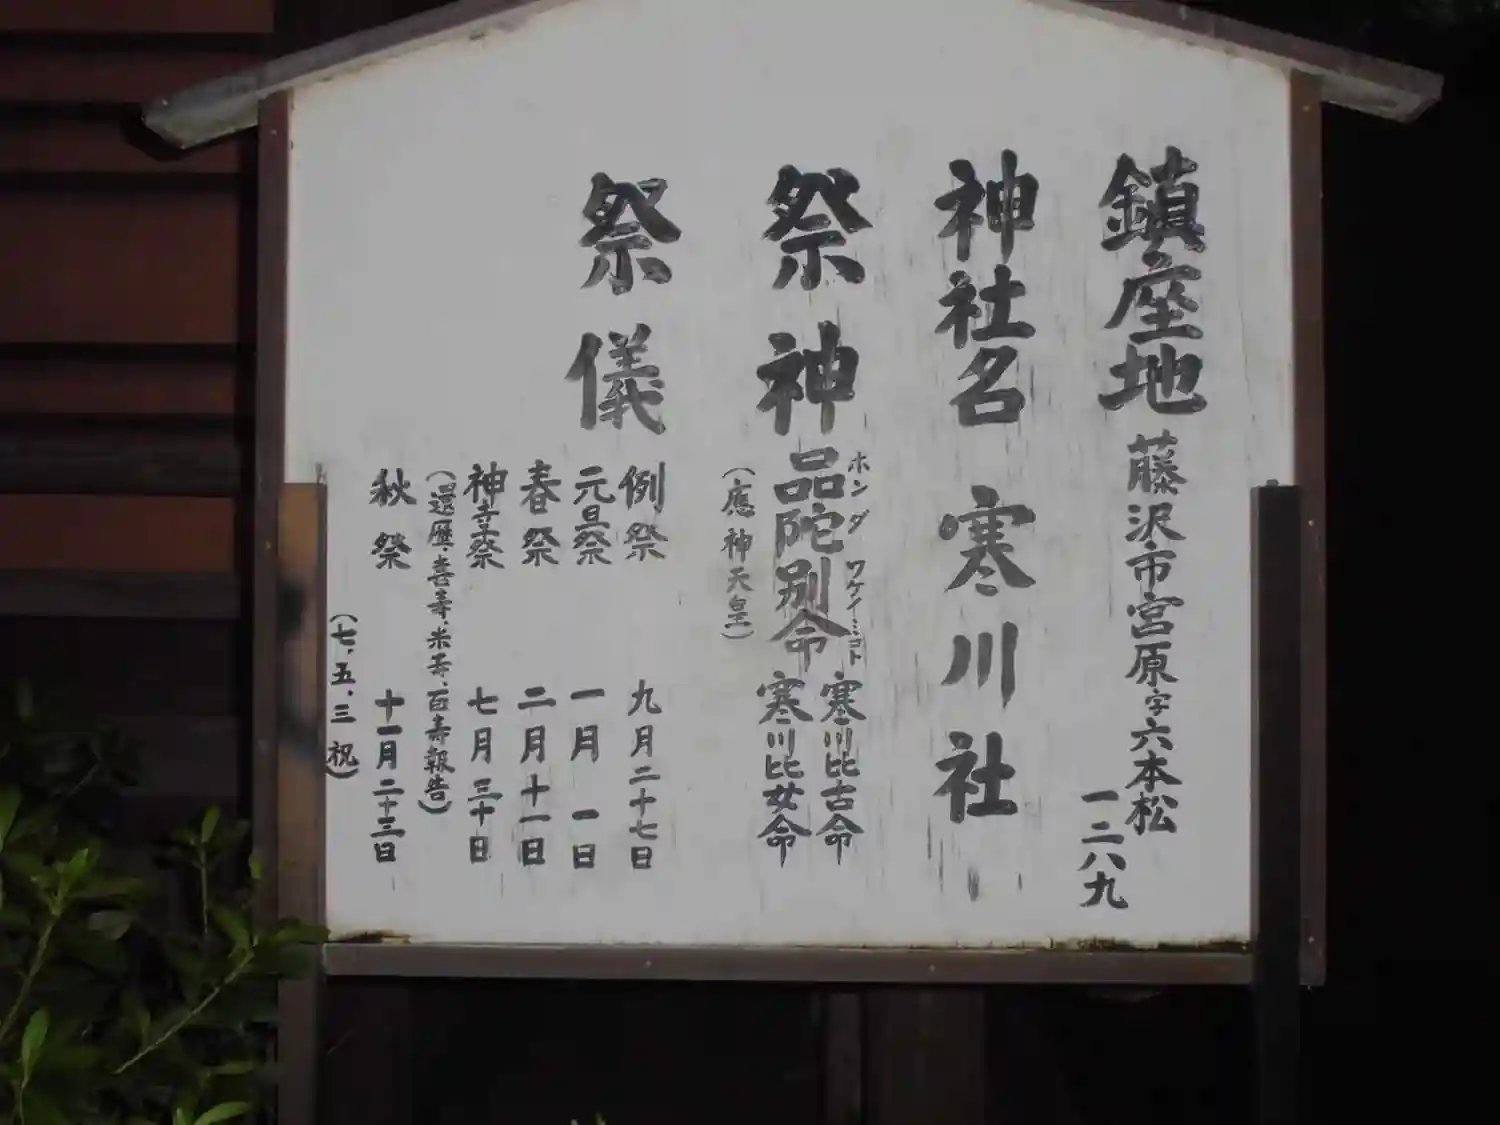 鎮座地 藤沢市宮原字六本松
一二八九
神社名 寒川社
祭神 品陀別命 寒川比古命
ホンダ ワケイミコト
寒川比女命
(應神天皇)
祭儀
例祭 九月二十七日
元旦祭 一月 一日
春祭 二月十一日
神幸祭 七月三十日
(還暦・喜寿・米寿・百寿報告)
秋祭 十一月二十三日
(七、五、三 祝)